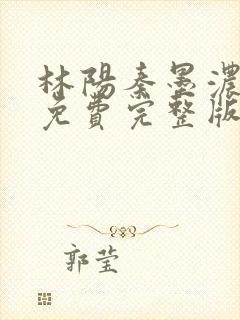 林陽秦墨濃
免費完整版
郭莹